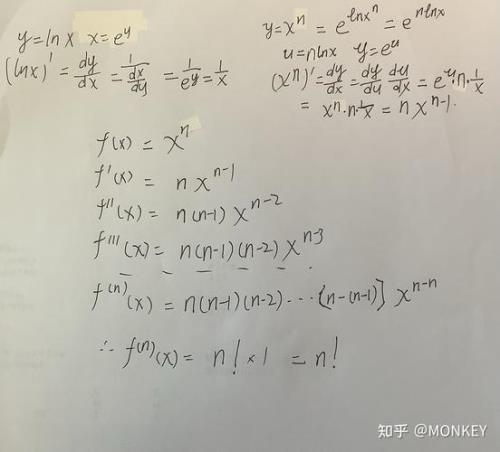 y=lnx x=e^y
(lnx)' = dy/dx = 1/(dx/dy) = 1/e^y = 1/x
y=x^n = e^{lnx^n} = e^{nlnx}
u=nlnx y=e^u
(x^n)' = dy/dx = dy/du du/dx = e^u n·1/x
= x^n·n·1/x = nx^{n-1}.
f(x) = x^n
f'(x) = nx^{n-1}
f''(x) = n(n-1)x^{n-2}
f'''(x) = n(n-1)(n-2)x^{n-3}
f^{(n)}(x) = n(n-1)(n-2)···[n-(n-1)] x^{n-n}
∴ f^{(n)}(x) = n! × 1 = n!
知乎 @MONKEY